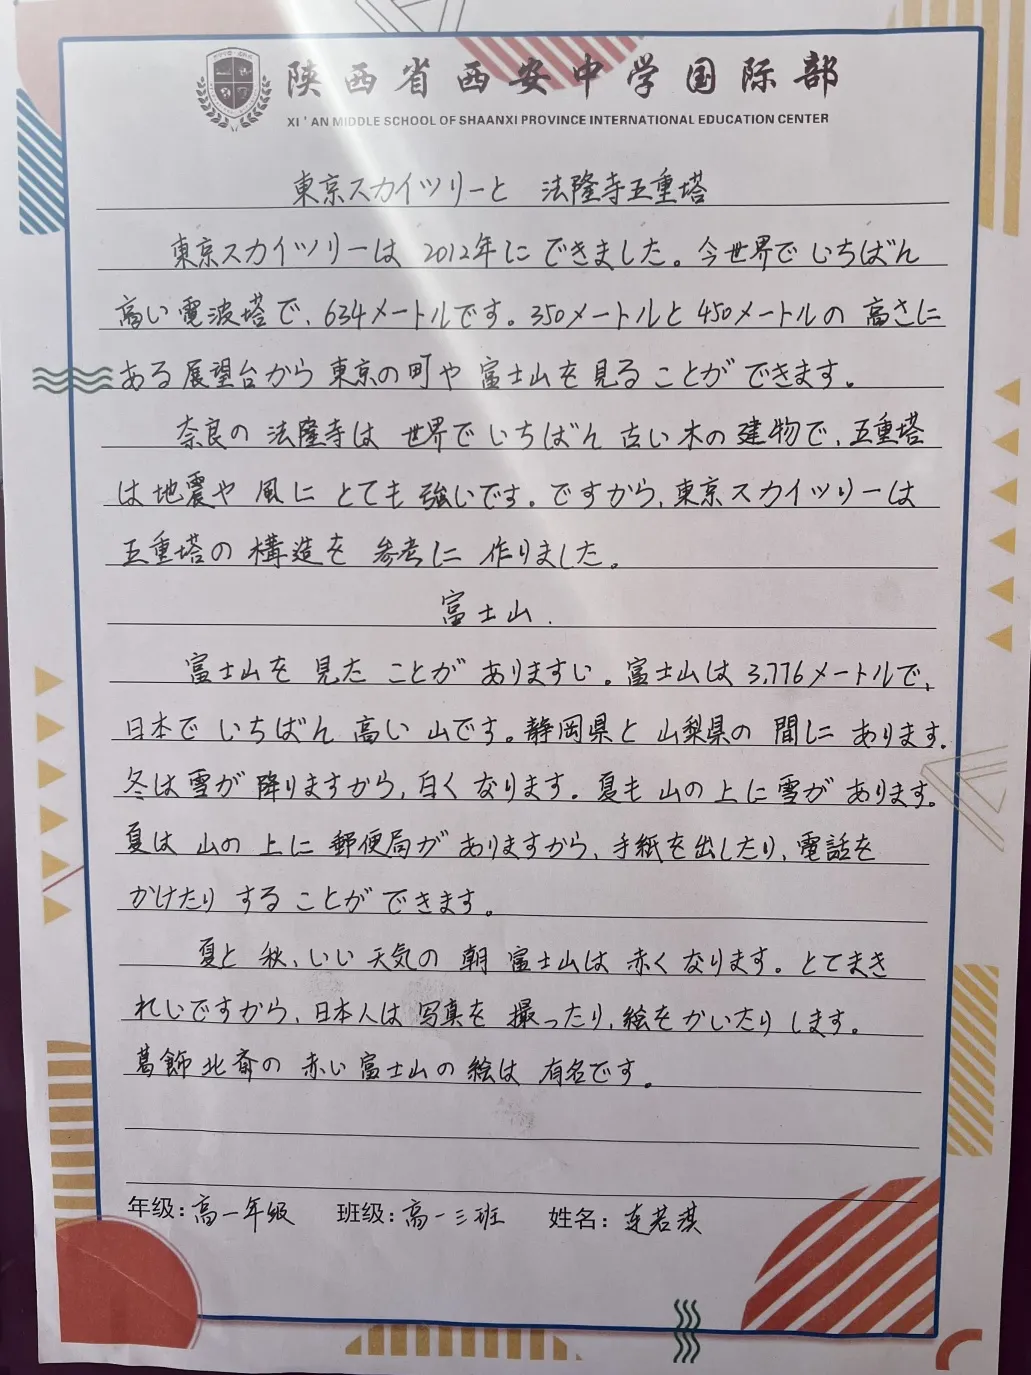 陕西省西安中学国际部
XI'AN MIDDLE SCHOOL OF SHAANXI PROVINCE INTERNATIONAL EDUCATION CENTER
東京スカイツリーと 法隆寺五重塔
東京スカイツリーは 2012年に できました。今世界で いちばん
高い 電波塔で、634メートルです。350メートルと 450メートルの 高さに
ある 展望台から 東京の 町や 富士山を 見る ことが できます。
奈良の 法隆寺は 世界で いちばん 古い 木の 建物で、五重塔
は 地震や 風に とても 強いです。ですから、東京スカイツリーは
五重塔の 構造を 参考に 作りました。
富士山.
富士山を 見た ことが ありますい。富士山は 3,776メートルで、
日本で いちばん 高い 山です。静岡県と 山梨県の 間に あります。
冬は 雪が 降りますから、白く なります。夏も 山の 上に 雪が あります。
夏は 山の 上に 郵便局が ありますから、手紙を 出したり、電話を
かけたり する ことが できます。
夏と 秋、いい 天気の 朝 富士山は 赤く なります。とてまき
れいですから、日本人は 写真を 撮ったり、絵を かいたり します。
葛飾北斎の 赤い 富士山の 絵は 有名です。
年级：高一年级 班级：高一三班 姓名：连若淇